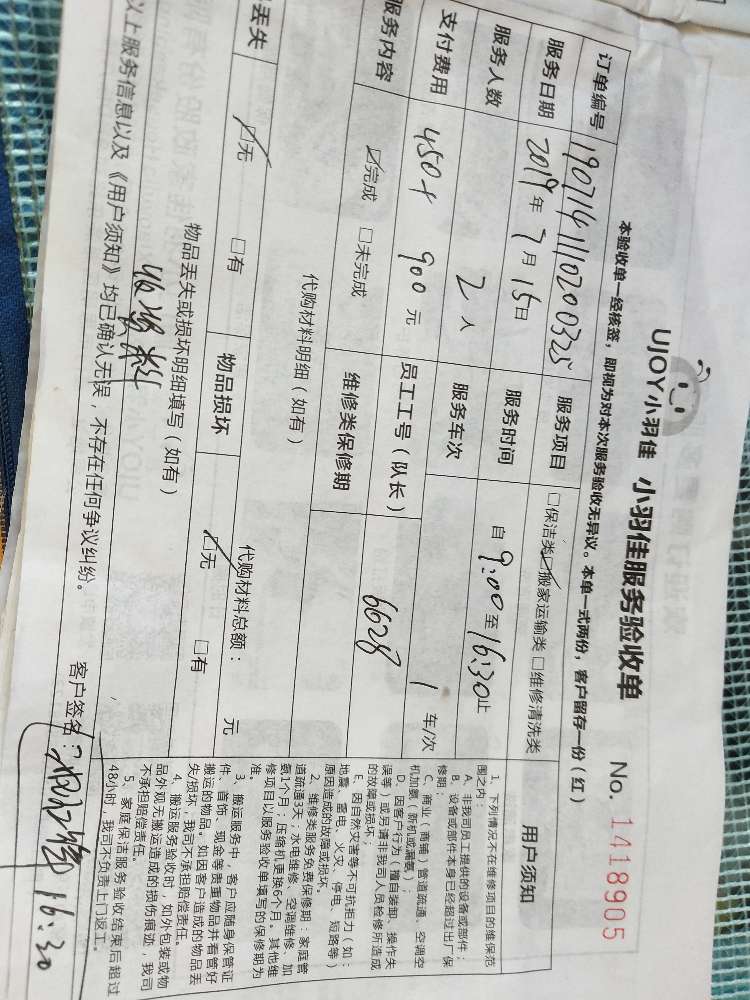 UJOY小羽佳 小羽佳服务验收单 No. 1418905
本验收单一经核签，即视为对本次服务验收无异议。本单一式两份，客户留存一份（红）
订单编号 1907141110200325 服务项目 □保洁类☑搬家运输类□维修清洗类
服务日期 2019年7月15日 服务时间 自9:00至16:30止
服务人数 2人 服务车次 1车/次
支付费用 450+ 900元 员工工号（队长） 6628
服务内容 ☑完成 □未完成 维修类保修期
代购材料明细（如有） 代购材料总额： 元
丢失 ☑无 □有 物品损坏 ☑无 □有
物品丢失或损坏明细填写（如有）
以上服务信息以及《用户须知》均已确认无误，不存在任何争议纠纷。 客户签名：
16:30
用户须知
1、下列情况不在维修项目的维保范
围之内：
A、非我司员工提供的设备或部件；
B、设备或部件本身已经超过出厂保
修期；
C、商业（商铺）管道疏通、空调空
机加氨（新机或漏氨）；
D、因客户行为（擅自装卸、操作失
误等）或另请非我司人员检修所造成
的故障或损坏；
E、因自然灾害等不可抗拒力（如：
地震、雷电、火灾、停电、短路等）
原因造成的故障或损坏。
2、维修类服务免费保修期：家庭管
道疏通3天；水电维修、空调维修、加
氨1个月；压缩机更换6个月。其他维
修项目以服务验收单填写的保修期为
准。
3、搬运服务中，客户应随身保管证
件、首饰、现金等贵重物品并看管好
搬运的物品。如因客户造成的物品丢
失/损坏，我司不承担赔偿责任。
4、搬运服务验收时，如外包装或物
品外观无搬运造成的损伤痕迹，我司
不承担赔偿责任。
5、家庭保洁服务验收结束后超过
48小时，我司不负责上门返工。